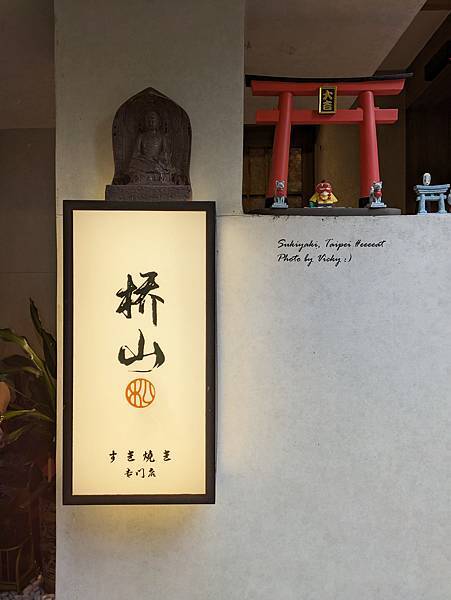 大吉
Sukiyaki, Taipei Heeeeat
Photo by Vicky :)
桥山
松
すき燒き
专门店